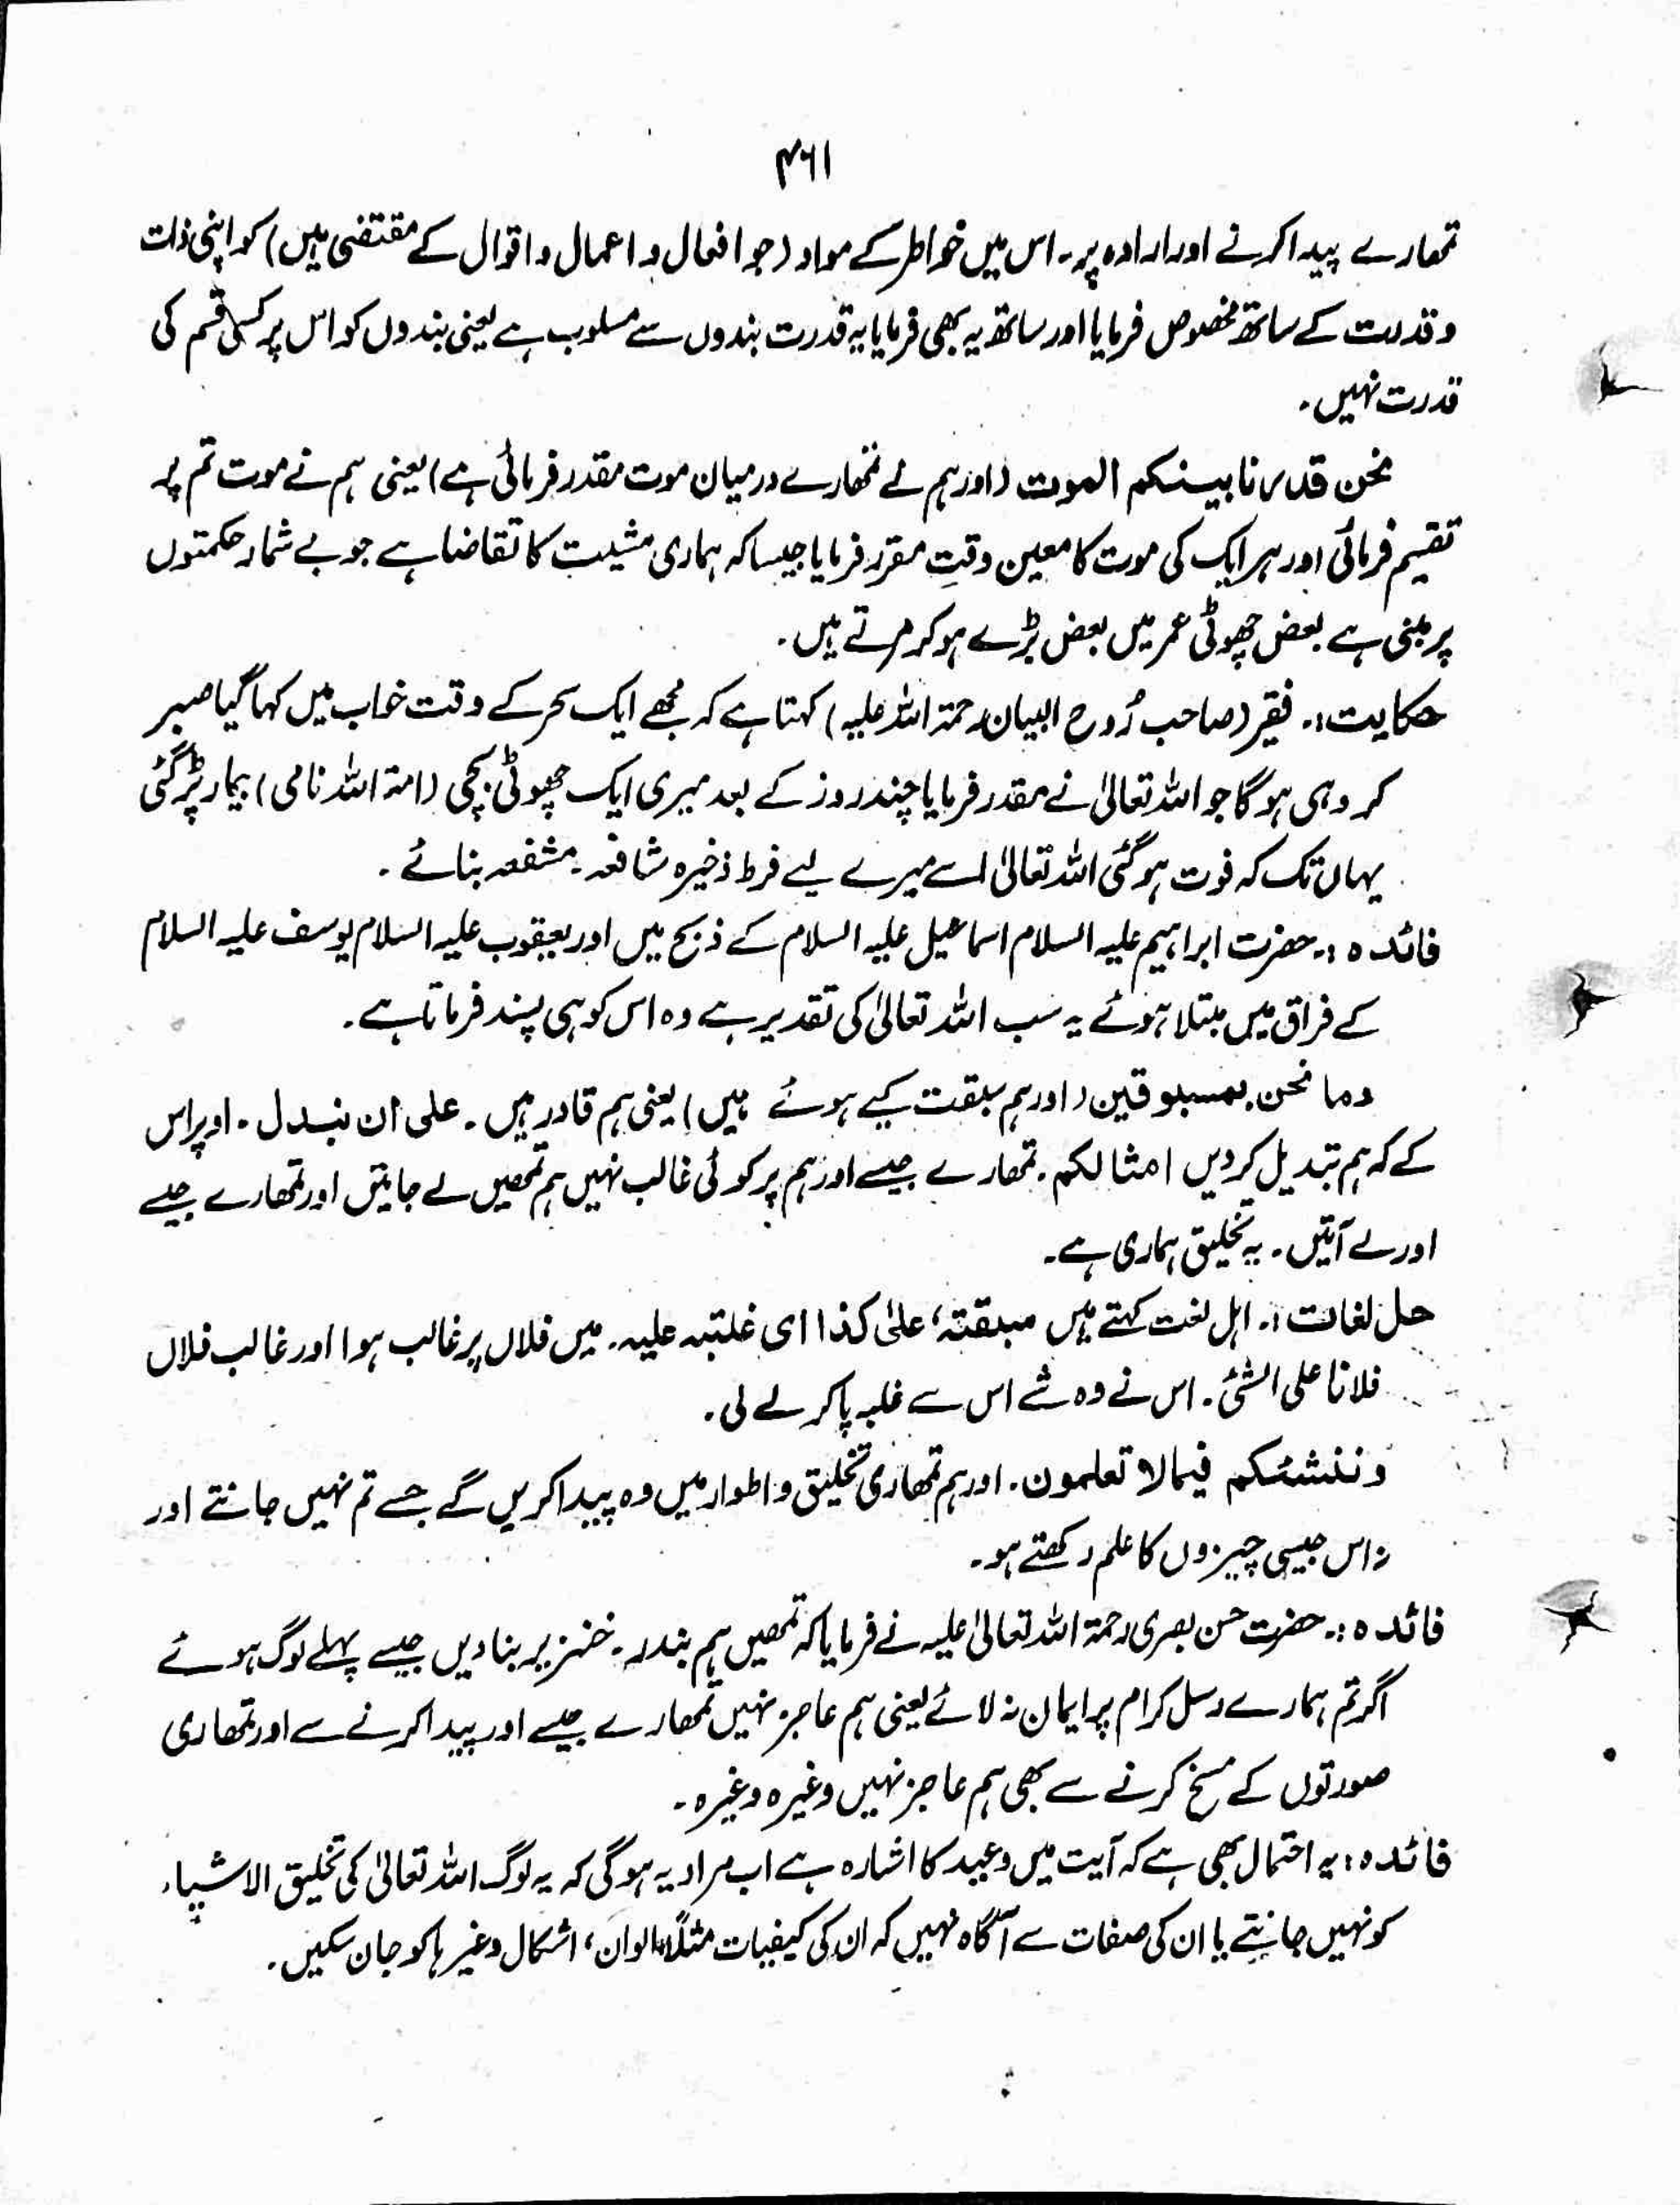 ۴۶۱
تمھارے پیدا کرنے اور ارادہ پر۔ اس میں خواطر کے مواد (جو افعال و اعمال و اقوال کے مقتضی ہیں) کو اپنی ذات
و قدرت کے ساتھ مخصوص فرمایا اور ساتھ یہ بھی فرمایا یہ قدرت بندوں سے مسلوب ہے یعنی بندوں کو اس پر کسی قسم کی
قدرت نہیں۔
نحن قدرنا بینکم الموت (اور ہم نے تمھارے درمیان موت مقدر فرمائی ہے) یعنی ہم نے موت تم پر
تقسیم فرمائی اور ہر ایک کی موت کا معین وقتِ مقرر فرمایا جیسا کہ ہماری مشیت کا تقاضا ہے جو بے شمار حکمتوں
پر مبنی ہے بعض چھوٹی عمر میں بعض بڑے ہو کر مرتے ہیں۔
حکایت:۔ فقیر (صاحب رُوح البیان رحمۃ اللہ علیہ) کہتا ہے کہ مجھے ایک سحر کے وقت خواب میں کہا گیا صبر
کر وہی ہو گا جو اللہ تعالیٰ نے مقدر فرمایا چند روز کے بعد میری ایک چھوٹی بچی (امۃ اللہ نامی) بیمار پڑ گئی
یہاں تک کہ فوت ہو گئی اللہ تعالیٰ اسے میرے لیے فرط ذخیرہ شافعہ۔ مشفعہ بنائے۔
فائدہ:۔ حضرت ابراہیم علیہ السلام اسماعیل علیہ السلام کے ذبح میں اور یعقوب علیہ السلام یوسف علیہ السلام
کے فراق میں مبتلا ہوئے یہ سب اللہ تعالیٰ کی تقدیر ہے وہ اس کو ہی پسند فرماتا ہے۔
وما نحن بمسبوقین (اور ہم سبقت کیے ہوئے ہیں) یعنی ہم قادر ہیں۔ علی ان نبدل۔ اوپر اس
کے کہ ہم تبدیل کر دیں امثالکم۔ تمھارے جیسے اور ہم پر کوئی غالب نہیں ہم تمھیں لے جائیں اور تمھارے جیسے
اور لے آئیں۔ یہ تخلیق ہماری ہے۔
حل لغات:۔ اہل لغت کہتے ہیں سبقتہ، علیٰ کذا ای غلبتہ علیہ۔ میں فلاں پر غالب ہوا اور غالب فلاں
فلانا علی الشئ۔ اس نے وہ شے اس سے غلبہ پا کر لے لی۔
وننشئکم فیما لا تعلمون۔ اور ہم تمھاری تخلیق و اطوار میں وہ پیدا کریں گے جسے تم نہیں جانتے اور
نہ اس جیسی چیزوں کا علم رکھتے ہو۔
فائدہ:۔ حضرت حسن بصری رحمۃ اللہ تعالیٰ علیہ نے فرمایا کہ تمھیں ہم بندر۔ خنزیر بنا دیں جیسے پہلے لوگ ہوئے
اگر تم ہمارے رسل کرام پر ایمان نہ لائے یعنی ہم عاجز نہیں تمھارے جیسے اور پیدا کرنے سے اور تمھاری
صورتوں کے مسخ کرنے سے بھی ہم عاجز نہیں وغیرہ وغیرہ۔
فائدہ: یہ احتمال بھی ہے کہ آیت میں وعید کا اشارہ ہے اب مراد یہ ہو گی کہ یہ لوگ اللہ تعالیٰ کی تخلیق الاشیاء
کو نہیں جانتے یا ان کی صفات سے آگاہ نہیں کہ ان کی کیفیات مثلاً الوان، اشکال وغیرہا کو جان سکیں۔